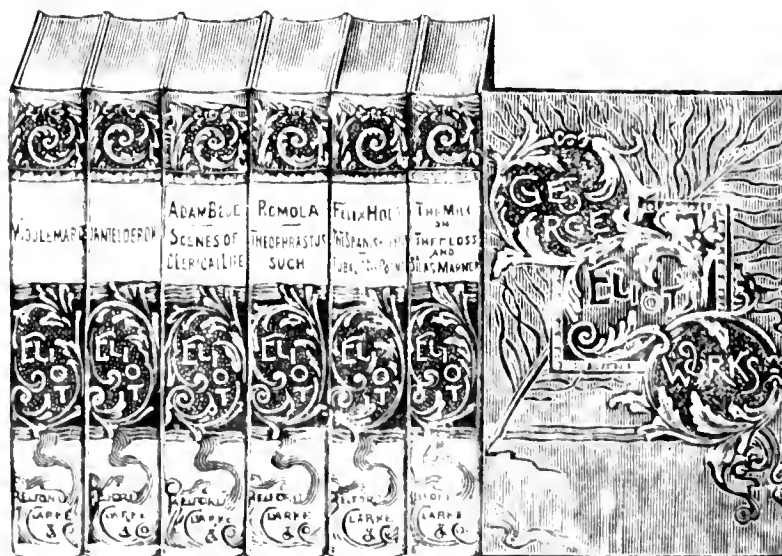 MIDDLEMARCH
ELIOT
BELFORD
CLARKE
& Co.
DANIEL DERONDA
ELIOT
BELFORD
CLARKE
& Co.
ADAM BEDE
SCENES OF
CLERICAL LIFE
ELIOT
BELFORD
CLARKE
& Co.
ROMOLA
THEOPHRASTUS
SUCH
ELIOT
BELFORD
CLARKE
& Co.
FELIX HOLT
ELIOT
BELFORD
CLARKE
& Co.
THE MILL
ON
THE FLOSS
AND
SILAS MARNER
ELIOT
BELFORD
CLARKE
& Co.
GEORGE
ELIOT
WORKS